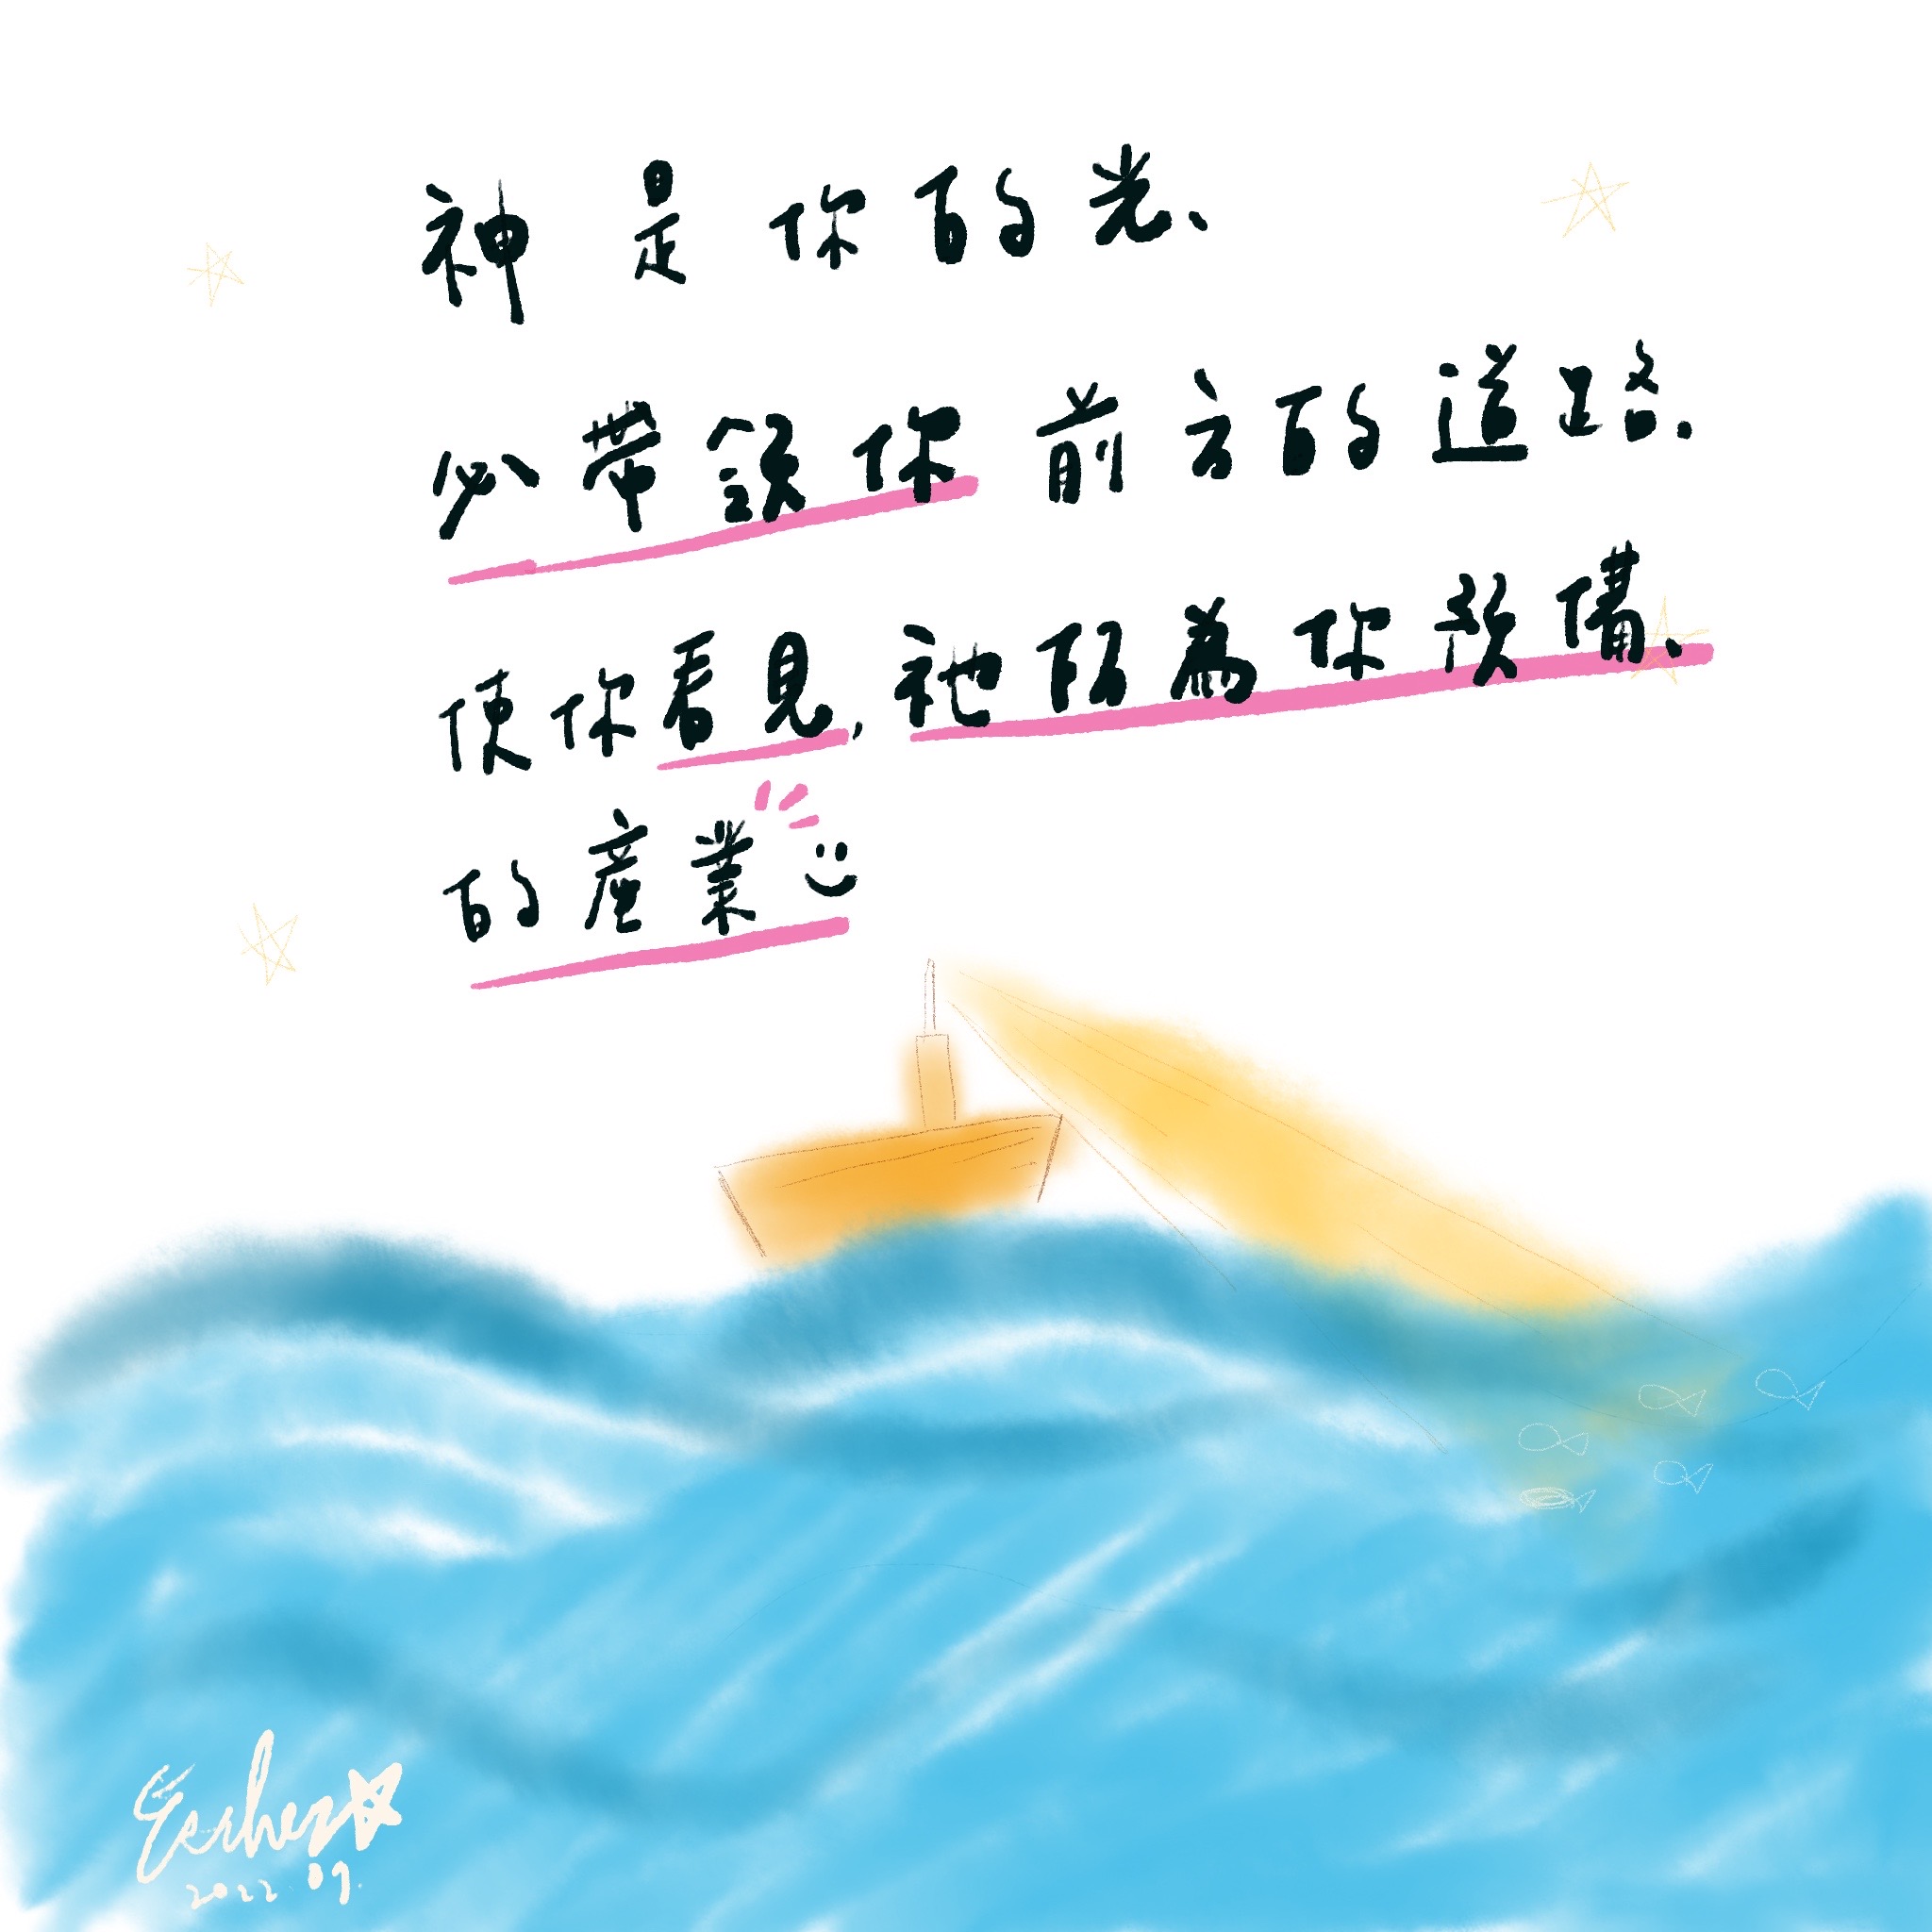 神是你的光、
必帶領你前方的道路.
使你看見,祂所為你預備、
的產業
2022.09.